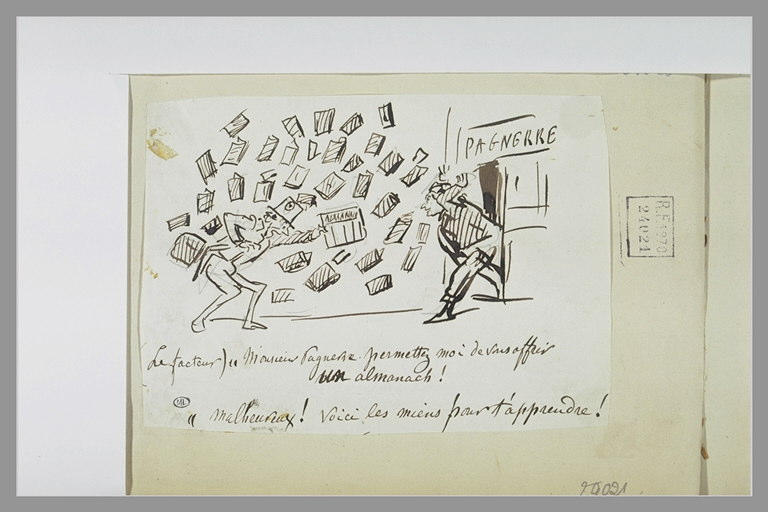 PAGNERRE
ALMANACH
(Le facteur) " Monsieur Pagnerre permettez moi de vous offrir
un almanach !
" malheureux ! voici les miens pour t'apprendre !
R.F. 1970
24021
24021